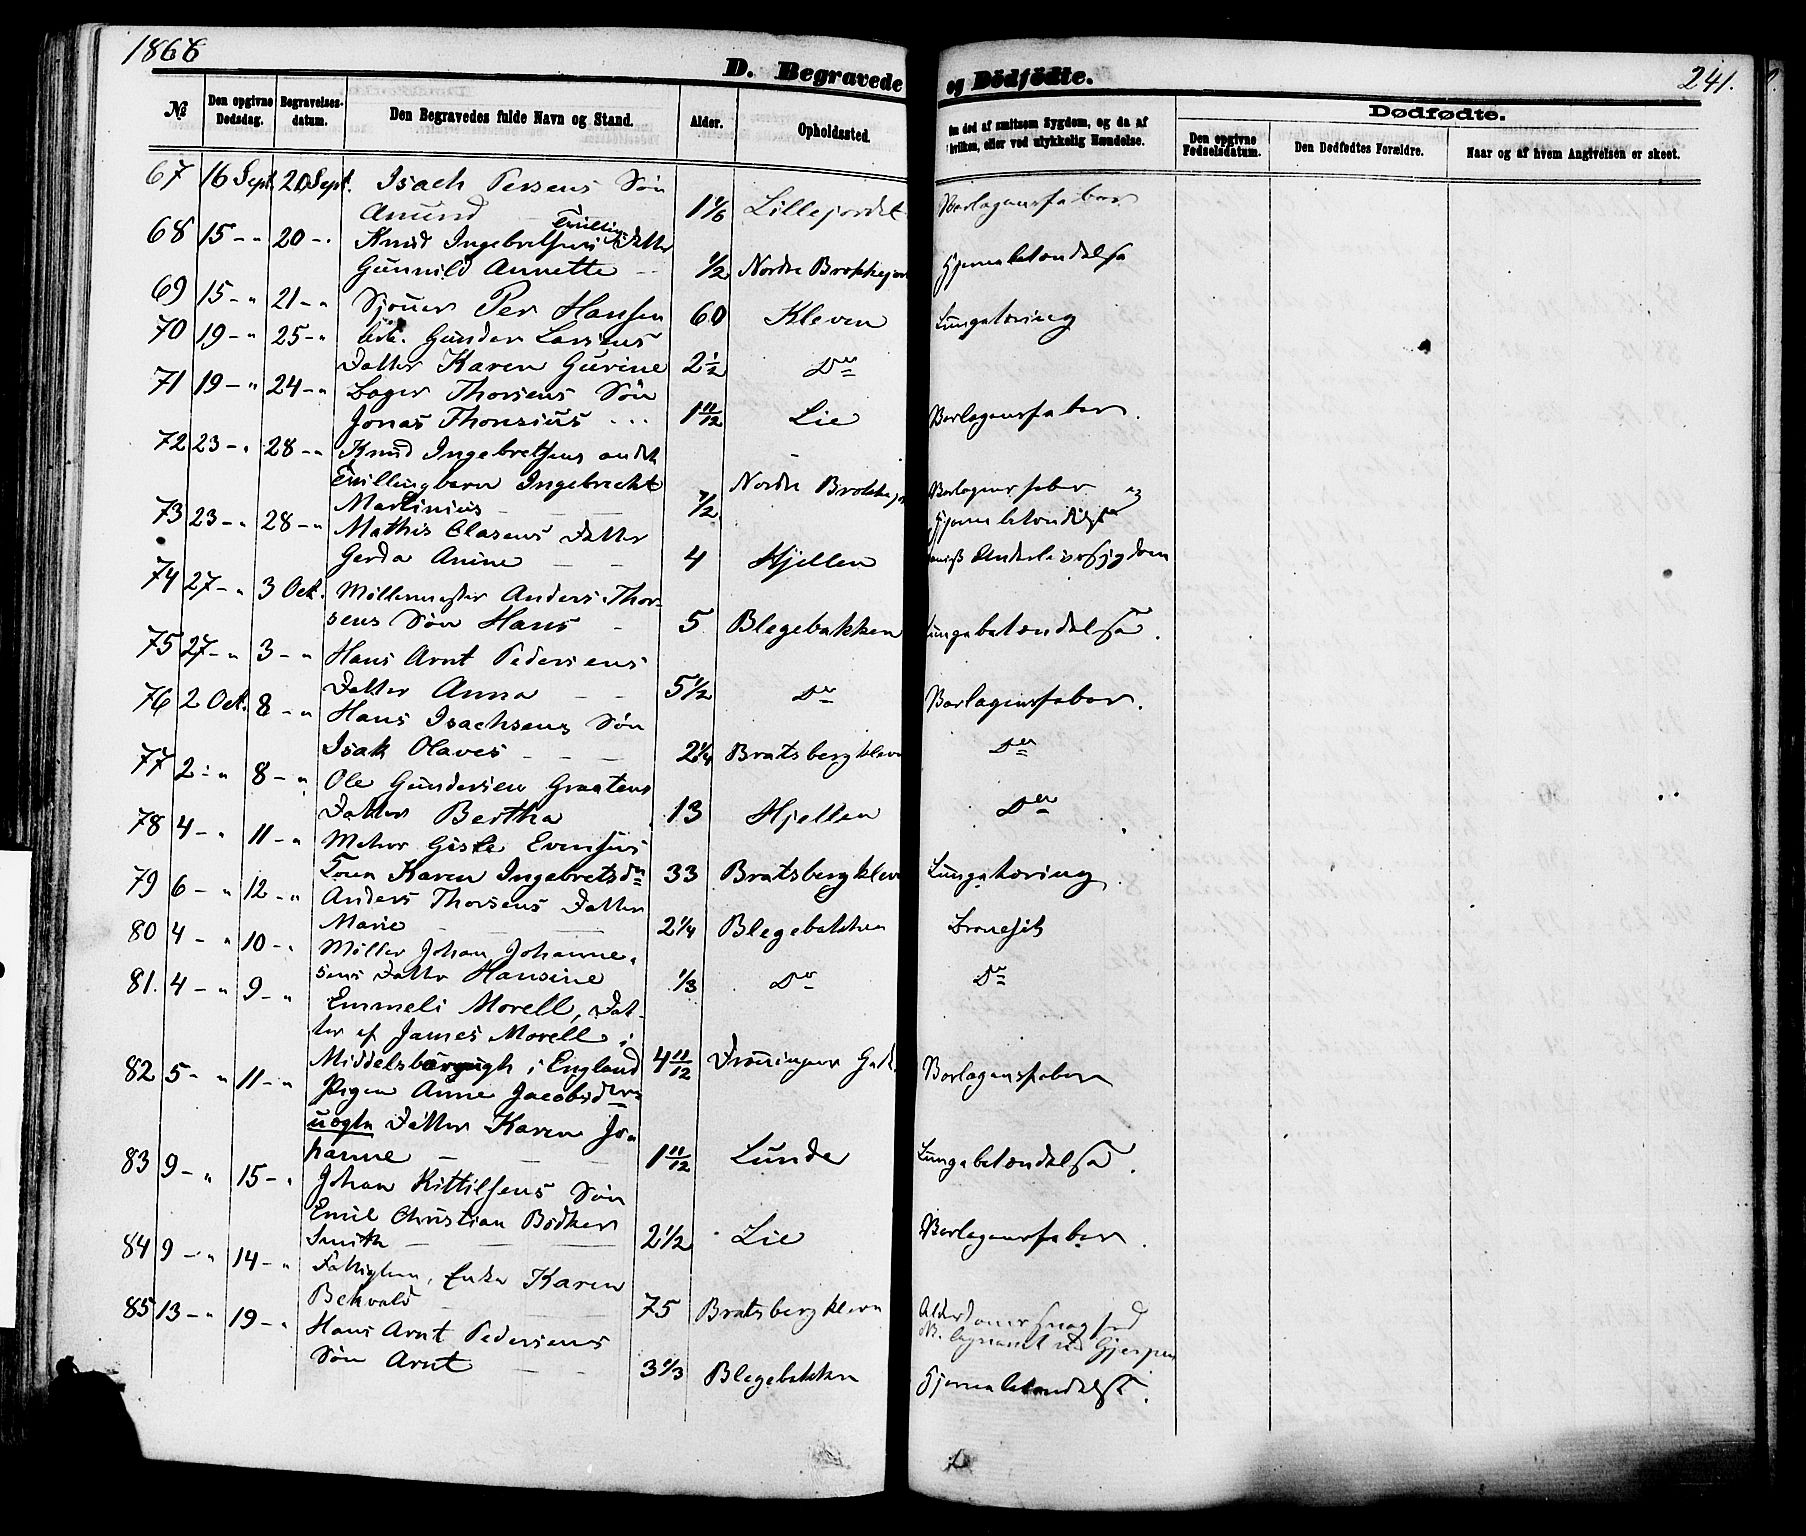 1866
D. Begravede og Dödfödte.
241.
№ Den opgivne Dødsdag. Begravelses-datum. Den Begravedes fulde Navn og Stand. Alder. Opholdssted. Om død af smitsom Sygdom, og da af hvilken, eller ved ulykkelig Hændelse. Dødfødte. Den opgivne Fødselsdatum. Den Dødfødtes Forældre. Naar og af hvem Angivelsen er skeet.
67 16 Sept. 20 Sept. Isach Persens Søn
Amund 1 1/6 Lillejordet Barlagensfeber
68 15 - " 20 - " Knud Ingebretsens Tvilling Datter
Gunnild Annette - - 1/2 Nordre Brokkejor Hjernebetændelse
69 15 - " 21 - " Sjouer Per Hansen 60 Kleven Lungetæring
70 19 - " 25 - " Arb. Gunder Larsens
Datter Karen Gurine 2 1/2 Do
71 19 - " 24 - " Bager Thorsens Søn
Jonas Thonsius ... 1 11/12 Lie Barlagensfeber.
72 23 - " 28 - " Knud Ingebretsens andet
Tvillingbarn Ingebrecht Nordre Brokkejor Barlagensfeber og
Martinius - - - 1/2 Hjernebetændelse
73 23 - " 28 - " Mathis Clasens Datter
Gerda Anine - - 4 Hjellen Underlivssygdom
74 27 - " 3 Oct. Möllermester Anders Thor-
sens Søn Hans - 5 Blegebakken Lungebetændelse.
75 27 - " 3 - " Hans Arnt Pedersens
Datter Anna - - 5 1/2 Do Barlagensfeber.
76 2 Oct. 8 - " Hans Isachsens Søn
Isak Olaves - - - 2 1/4 Bratsbergkleve Do
77 2 - " 8 - " Ole Gundersen Graatens
Datter Bertha 13 Hjellen Do
78 4 - " 11 - " Matros Gisle Evensens
Kone Karen Ingebretsdr 33 Bratsbergkleve Lungetæring.
79 6 - " 12 - " Anders Thorsens Datter
Marie - - - 2 1/4 Blegebakken Bronchit
80 4 - " 10 - " Möller Johan Johanne-
sens Datter Hansine 1/3 Do Do
81. 4 - " 9 - " Emmeli Morell, Dat-
ter af James Morell i
Middelsborough i England 4 11/12 Dronningens Gade
82 5 - " 11 - " Pigen Anne Jacobsdrs Barlagensfeber
uægte Datter Karen Jo-
hanne - - - 1 11/12 Lunde Lungebetændelse.
83 9 - " 15 - " Johan Kittilsens Søn
Emil Christian Bödker
Smith - - - 2 1/2 Lie Barlagensfeber.
84 9 - " 14 - " Fattiglem, Enke Karen
Bekvald - - - 75 Bratsbergkleva Alderdomssvaghed
NB. begravet ved Gjerpen
85 13 - " 19 - " Hans Arnt Pedersens
Søn Arnt - - 3 1/3 Blegebakken Hjernebetændelse.